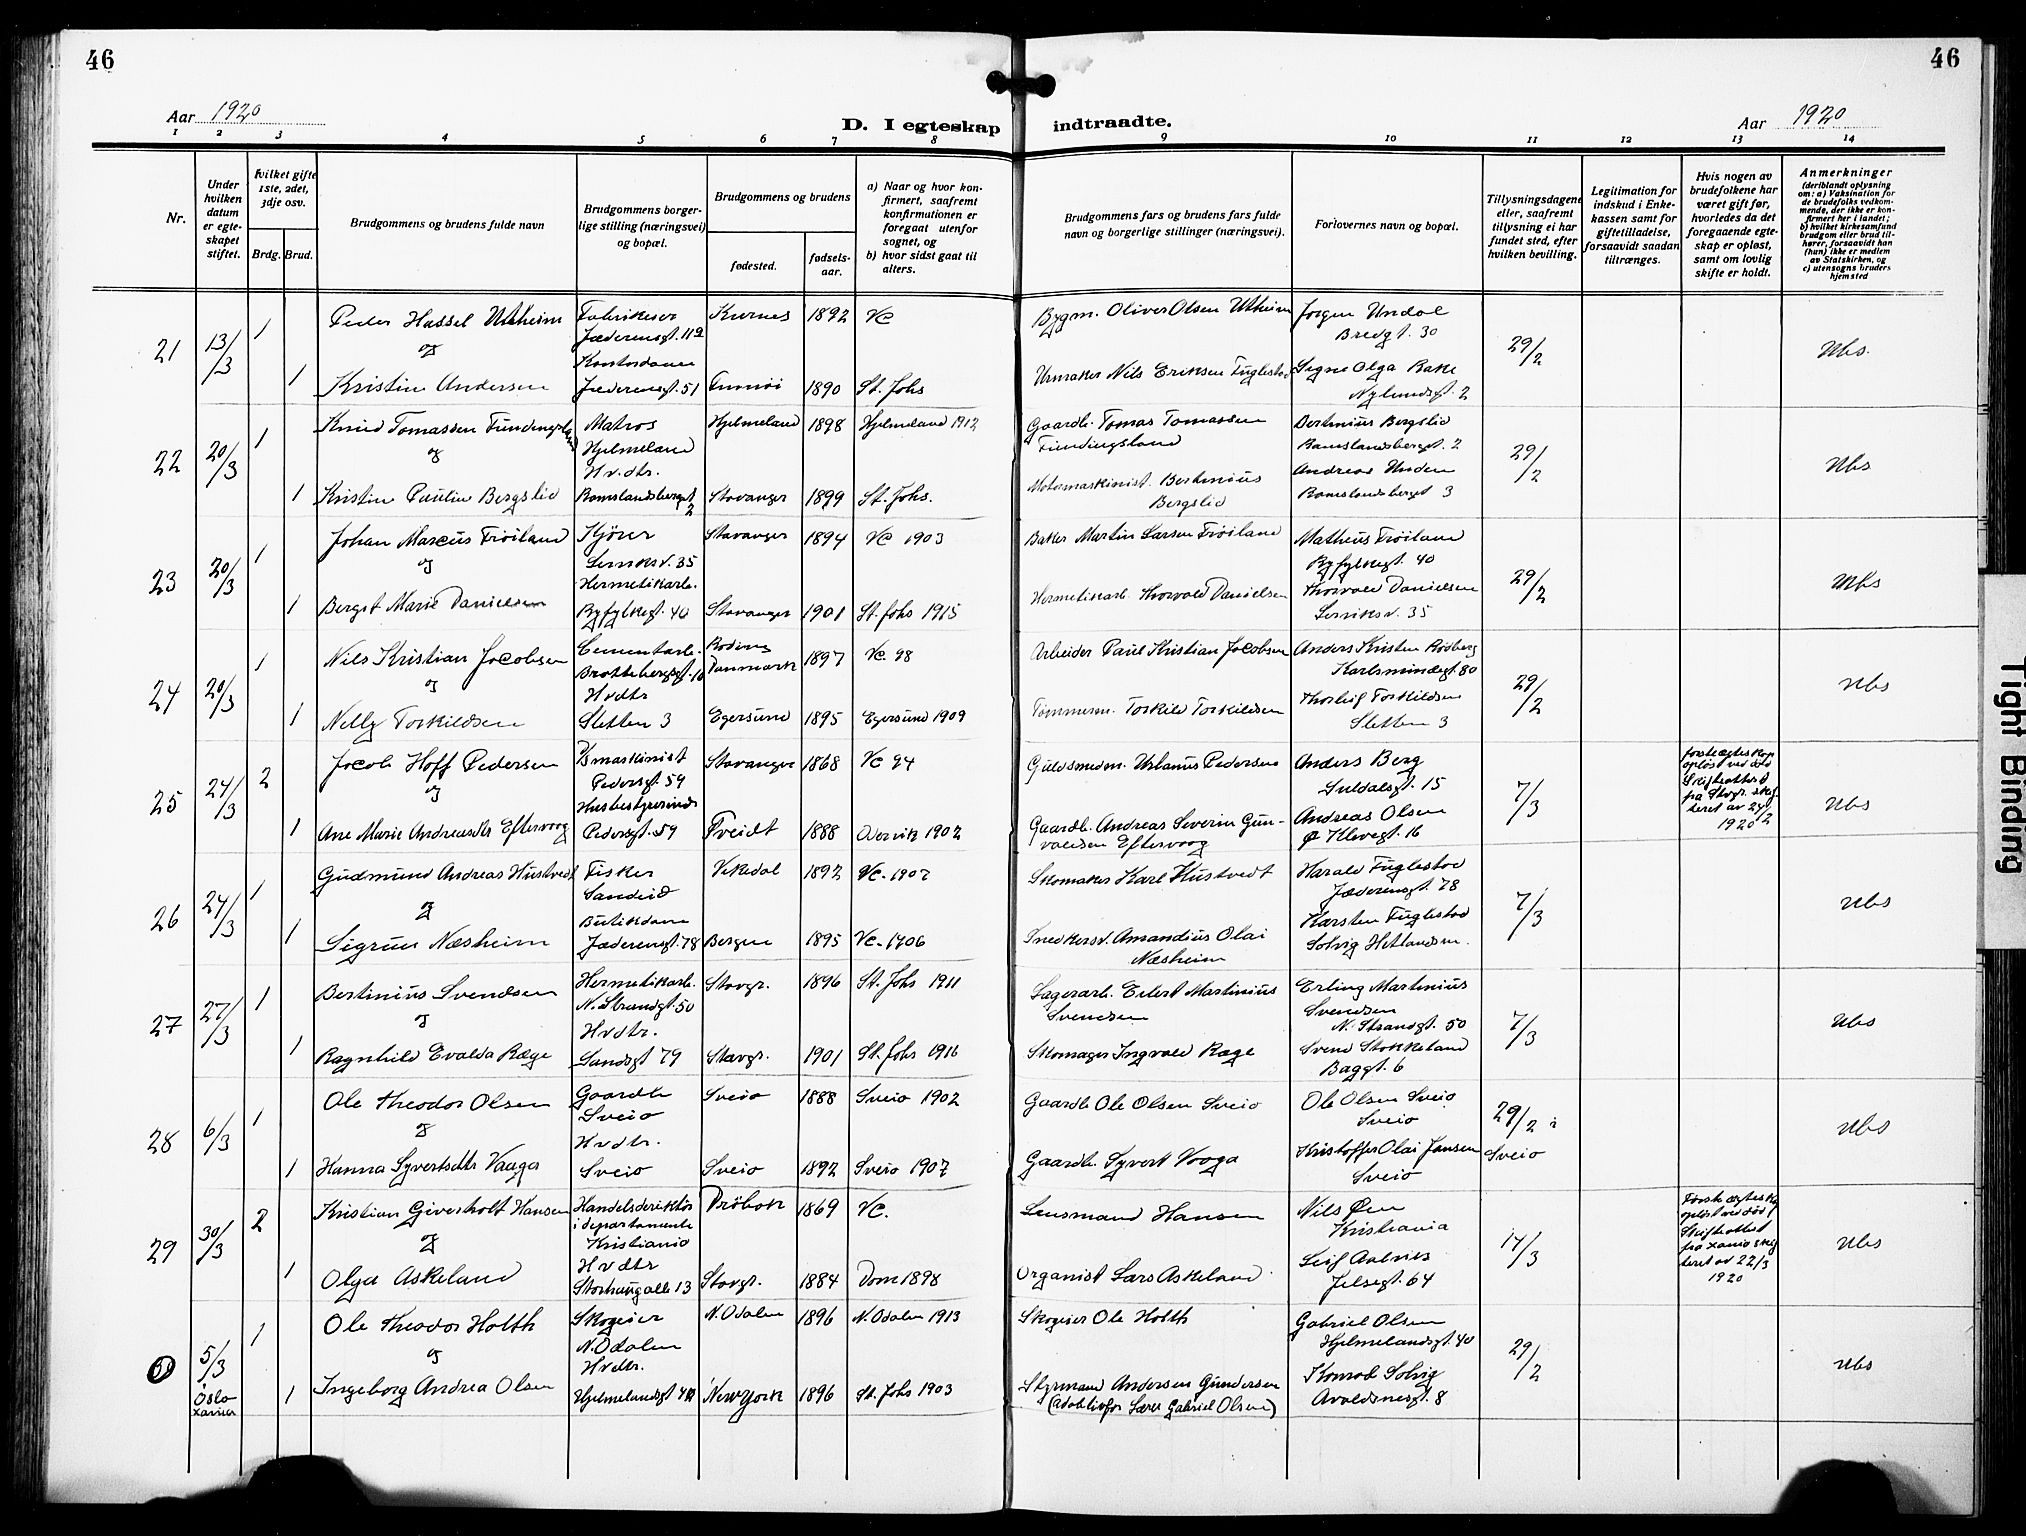 46
46
Aar 1920
D. I egteskap indtraadte.
Aar 1920
1 2 3 4 5 6 7 8 9 10 11 12 13 14
Nr.
Under hvilken datum er egteskapet stiftet.
hvilket gifte 1ste, 2det, 3dje osv.
Brdg. Brud.
Brudgommens og brudens fulde navn
Brudgommens borgerlige stilling (næringsvei) og bopæl.
Brudgommens og brudens
fødested.
fødselsaar.
a) Naar og hvor konfirmert, saafremt konfirmationen er foregaat utenfor sognet, og
b) hvor sidst gaat til alters.
Brudgommens fars og brudens fars fulde navn og borgerlige stillinger (næringsvei).
Forlovernes navn og bopæl.
Tillysningsdagene eller, saafremt tillysning ei har fundet sted, efter hvilken bevilling.
Legitimation for indskud i Enkekassen samt for giftetilladelse, forsaavidt saadan tiltrænges.
Hvis nogen av brudefolkene har været gift før, hvorledes da det foregaaende egteskap er opløst, samt om lovlig skifte er holdt.
Anmerkninger
(deriblandt oplysning om: a) Vaksination for de brudefolks vedkommende, der ikke er konfirmert her i landet; b) hvilket kirkesamfund brudgom eller brud tilhører, forsaavidt han (hun) ikke er medlem av Statskirken, og c) utensogns bruders hjemsted
21 13/3 1 Peder Hassel Utheim
Jæderensgt. 119
1892 VC
Bygm. Oliver Olsen Utheim
Jørgen Undal
Bredgt. 30
29/2
Ubs.
og
Kontordame
1 Kristine Andersen
Jæderensgt. 51
1890 St. Johs
Urmaker Nils Eriksen Fuglestad
Signe Olga Bake
Nylundsgt. 2
22 20/3 1 Knud Tomassen Fundingsland
Matros
Hjelmeland
Hjelmeland 1898 Hjelmeland 1912
Gaardb. Tomas Tomassen
Fundingsland
Bertinius Bergslid
Ramslandsberget. 2
29/2
Ubs
og
Hv. dtr.
1 Kristine Pauline Bergslid
Ramslandsberget 2
Stavanger 1899 St. Johs.
Motormaskinist. Bertinius
Bergslid
Andreas Unden
Ramslandsberget 3
23 20/3 1 Johan Marcus Frøiland
Kjører
Lerviksv. 35
Stavanger 1894 VC 1903
Baker Martin Larsen Frøiland
Matheus Frøiland
Ryfylkegt. 40
29/2
Ubs
og
Hermetikarb.
1 Bergit Marie Danielsen
Ryfylkegt. 40
Stavanger 1901 St. Johs 1915
Hermetikarb. Thorvald Danielsen
Thorvald Danielsen
Lerviksv. 35
24 20/3 1 Nils Kristian Jacobsen
Cementarb.
Brattebergsgt. 10
Danmark 1897 VC. 98
Arbeider Paul Kristian Jacobsen
Anders Kristen Rødberg
Karlsmindegt. 80
29/2
Ubs
og
Hvdtr
1 Nelly Torkildsen
Sletten 3
Egersund 1895 Egersund 1909
Tømmerm. Torkild Torkildsen
Thorleif Torkildsen
Sletten 3
25 24/3 2 Jacob Hoff Pedersen
D/smaskinist
Pedersgt. 59
Stavanger 1868 VC 94
Guldsmedm. Urbanus Pedersen
Anders Berg
Suldalsgt. 15
7/3
første egteskap
opløst ved død
Skifteattest
fra Stvgr. skifteret av 24/2
1920
Ubs
og
Husbestyrerinde
1 Ane Marie Andreasdtr Eftervaag
Pedersgt. 59
Tveidt 1888 1902
Gaardb. Andreas Severin Gunvaldsen Eftervaag
Andreas Olsen
Ø Klevegt. 16
26 24/3 1 Gudmund Andreas Hustvedt
Fisker
Sandeid
Vikedal 1892 VC. 1907
Skomaker Karl Hustvedt
Harald Fuglestad
Jæderensgt. 78
7/3
Ubs
og
Butikdame
1 Sigrun Næsheim
Jæderensgt. 78
Bergen 1895 VC. 1906
Snedkersv. Amandius Olai
Næsheim
Karsten Fuglestad
Solvig Hetlandsm.
27 27/3 1 Bertinius Svendsen
Hermetikarb.
N. Strandgt. 50
Stavgr. 1896 St. Johs 1911
Lagerarb. Eilert Martinius
Svendsen
Erling Martinius
Svendsen
N. Strandgt. 50
7/3
Ubs
og
Hvdtr.
1 Ragnhild Evalda Ræge
Sandsgt 79
Stavgr. 1901 St. Johs 1916
Skomager Ingvald Ræge
Svend Stokkeland
Baggt. 6
28 6/3 1 Ole Theodor Olsen
Gaardb
Sveio
Sveio 1888 Sveio 1902
Gaardb Ole Olsen Sveio
Ole Olsen Sveio
Sveio
29/2 i Sveio
Ubs
og
Hvdtr.
1 Hanna Syvertsdtr Vaaga
Sveio
Sveio 1892 Sveio 1907
Gaardb. Syvert Vaaga
Kristoffer Olai Jansen
Sveio
29 30/3 2 Kristian Giverholt Hansen
Handelsdirektør
i departamente
Kristiania
Drøbak 1869 VC.
Lensmand Hansen
Nils Øen
Kristiania
14/3
Første egteskap
opløst ved død
Skifteattest
fra Xania skifteret av 22/3
1920
Ubs
og
Hvdtr
1 Olga Askeland
Storhaugalle 13
Stavgr. 1884 Dom 1898
Organist Lars Askeland
Leif Aalvik
Jelsegt. 64
30 5/3 Oslo 1 Ole Theodor Holth
Skogeier
N. Odalen
N. Odalen 1896 N. Odalen 1913
Skogeier Ole Holth
Gabriel Olsen
Hjelmelandsgt. 40
29/2
Ubs
og
Hvdtr.
1 Ingeborg Andrea Olsen
Hjelmelandsgt 40
New York 1896 St. Johs 1903
Styrmand Andersen Gundersen
(adoblivfar Lærer Gabriel Olsen)
Konrad Solvig
Avaldsnesgt. 8
Tight Binding